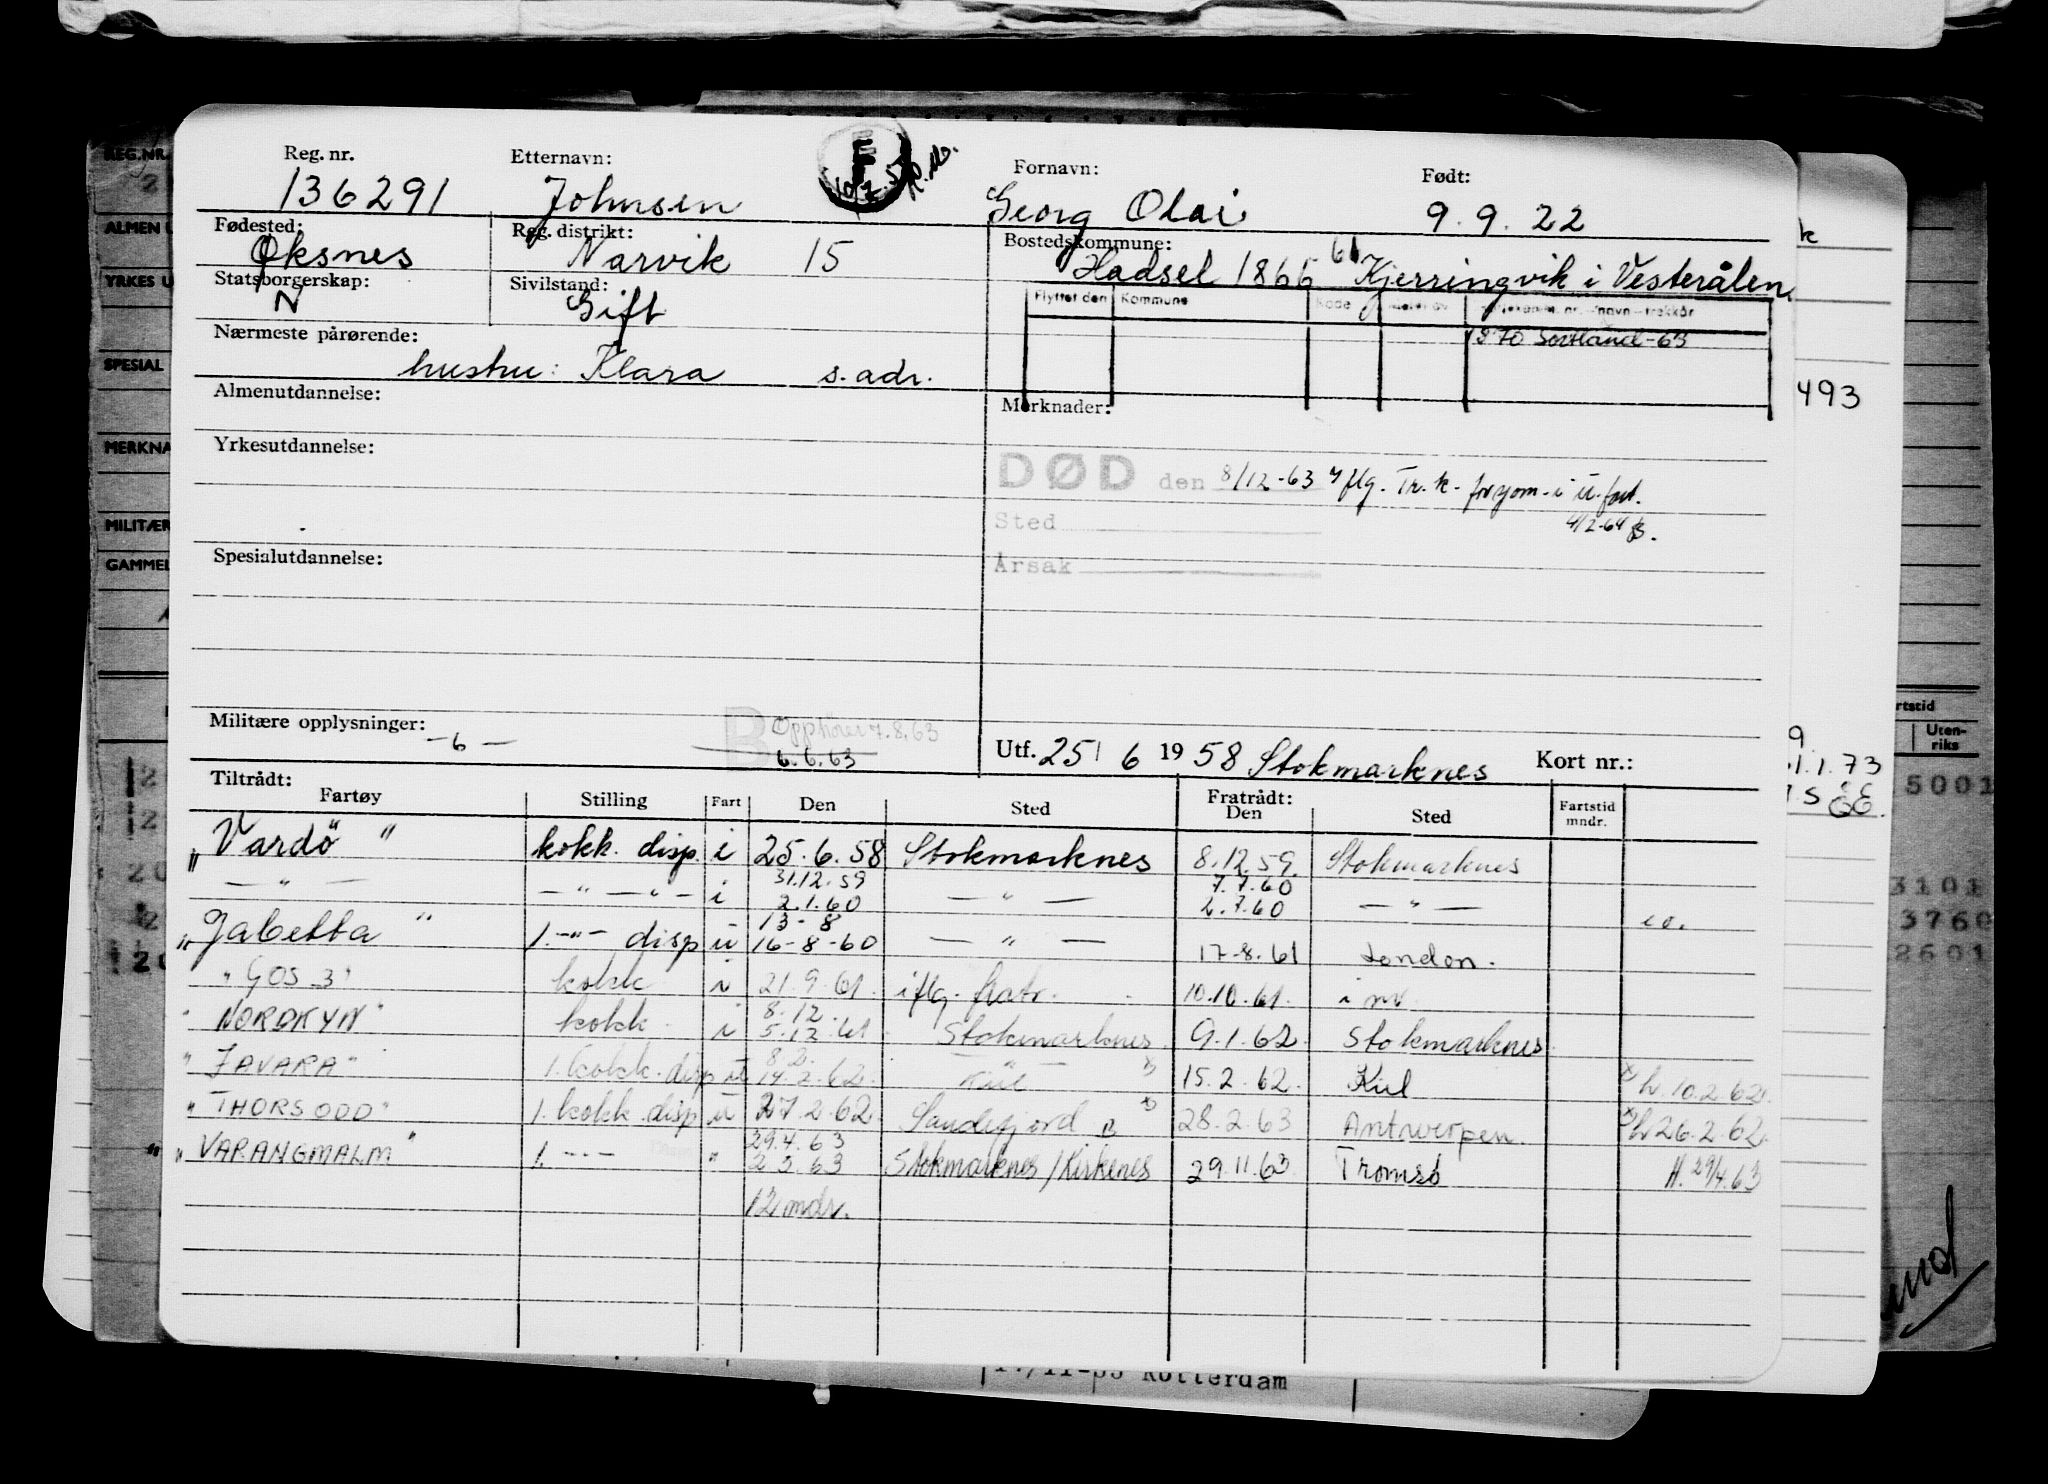 Reg. nr. Etternavn: Fornavn: Født:
136291 Johnsen Georg Olai 9.9.22
Fødested: Reg. distrikt: Bostedskommune:
Øksnes Narvik 15 Hadsel 1866 61 Kjerringvik i Vesterålen
Statsborgerskap: Sivilstand:
N Gift
Flyttet den Kommune Kode
1870 Sortland-63
Nærmeste pårørende:
hustru: Klara s. adr.
Almenutdannelse: Merknader:
493
Yrkesutdannelse:
DØD den 8/12-63 iflg. Tr.k. for sjøm. i u.fart.
4/2-64
Sted
Spesialutdannelse: Årsak
Militære opplysninger: -6- B Opphører 7.8.63
6.6.63
Utf. 25/6 1958 Stokmarknes Kort nr.:
Tiltrådt: Fratrådt:
Fartøy Stilling Fart Den Sted Den Sted Fartstid mndr.
"Vardø" kokk. disp. i 25.6.58 Stokmarknes 8.12.59. Stokmarknes
— " — — " — " — i 31.12.59 2.1.60 — " — 7.7.60 2.7.60 — " —
"Jabetta" 1. -"- disp u 13-8 16-8-60 — " — 17-8.61 London.
"GOS 3" kokk i 21.9.61. iflg. fratr. 10.10.61. i nv.
"NORDKYN" kokk. i 8.12. 5.12.61 Stokmarknes 9.1.62. Stokmarknes
"JAVARA" 1. kokk. disp ut 8.2. 14.2.62. Kiel 15.2.62. Kiel h. 10.2.62.
"THORSODD" 1. kokk. disp u 27.2.62 Sandefjord B 28.2.63 Antwerpen. h 26.2.62.
"VARANGMALM" 1. -"- " 29.4.63 2.5.63 Stokmarknes/Kirkenes 29.11.63 Tromsø H. 29/4.63
12 mndr.
REG.NR.
ALMEN U
YRKES U
SPESIAL
MERKNA
MILITÆR
GAMMEL
rtstid
Uten-
riks
1.1.73
5001
3101
3760
2601
17/11-53 Rotterdam